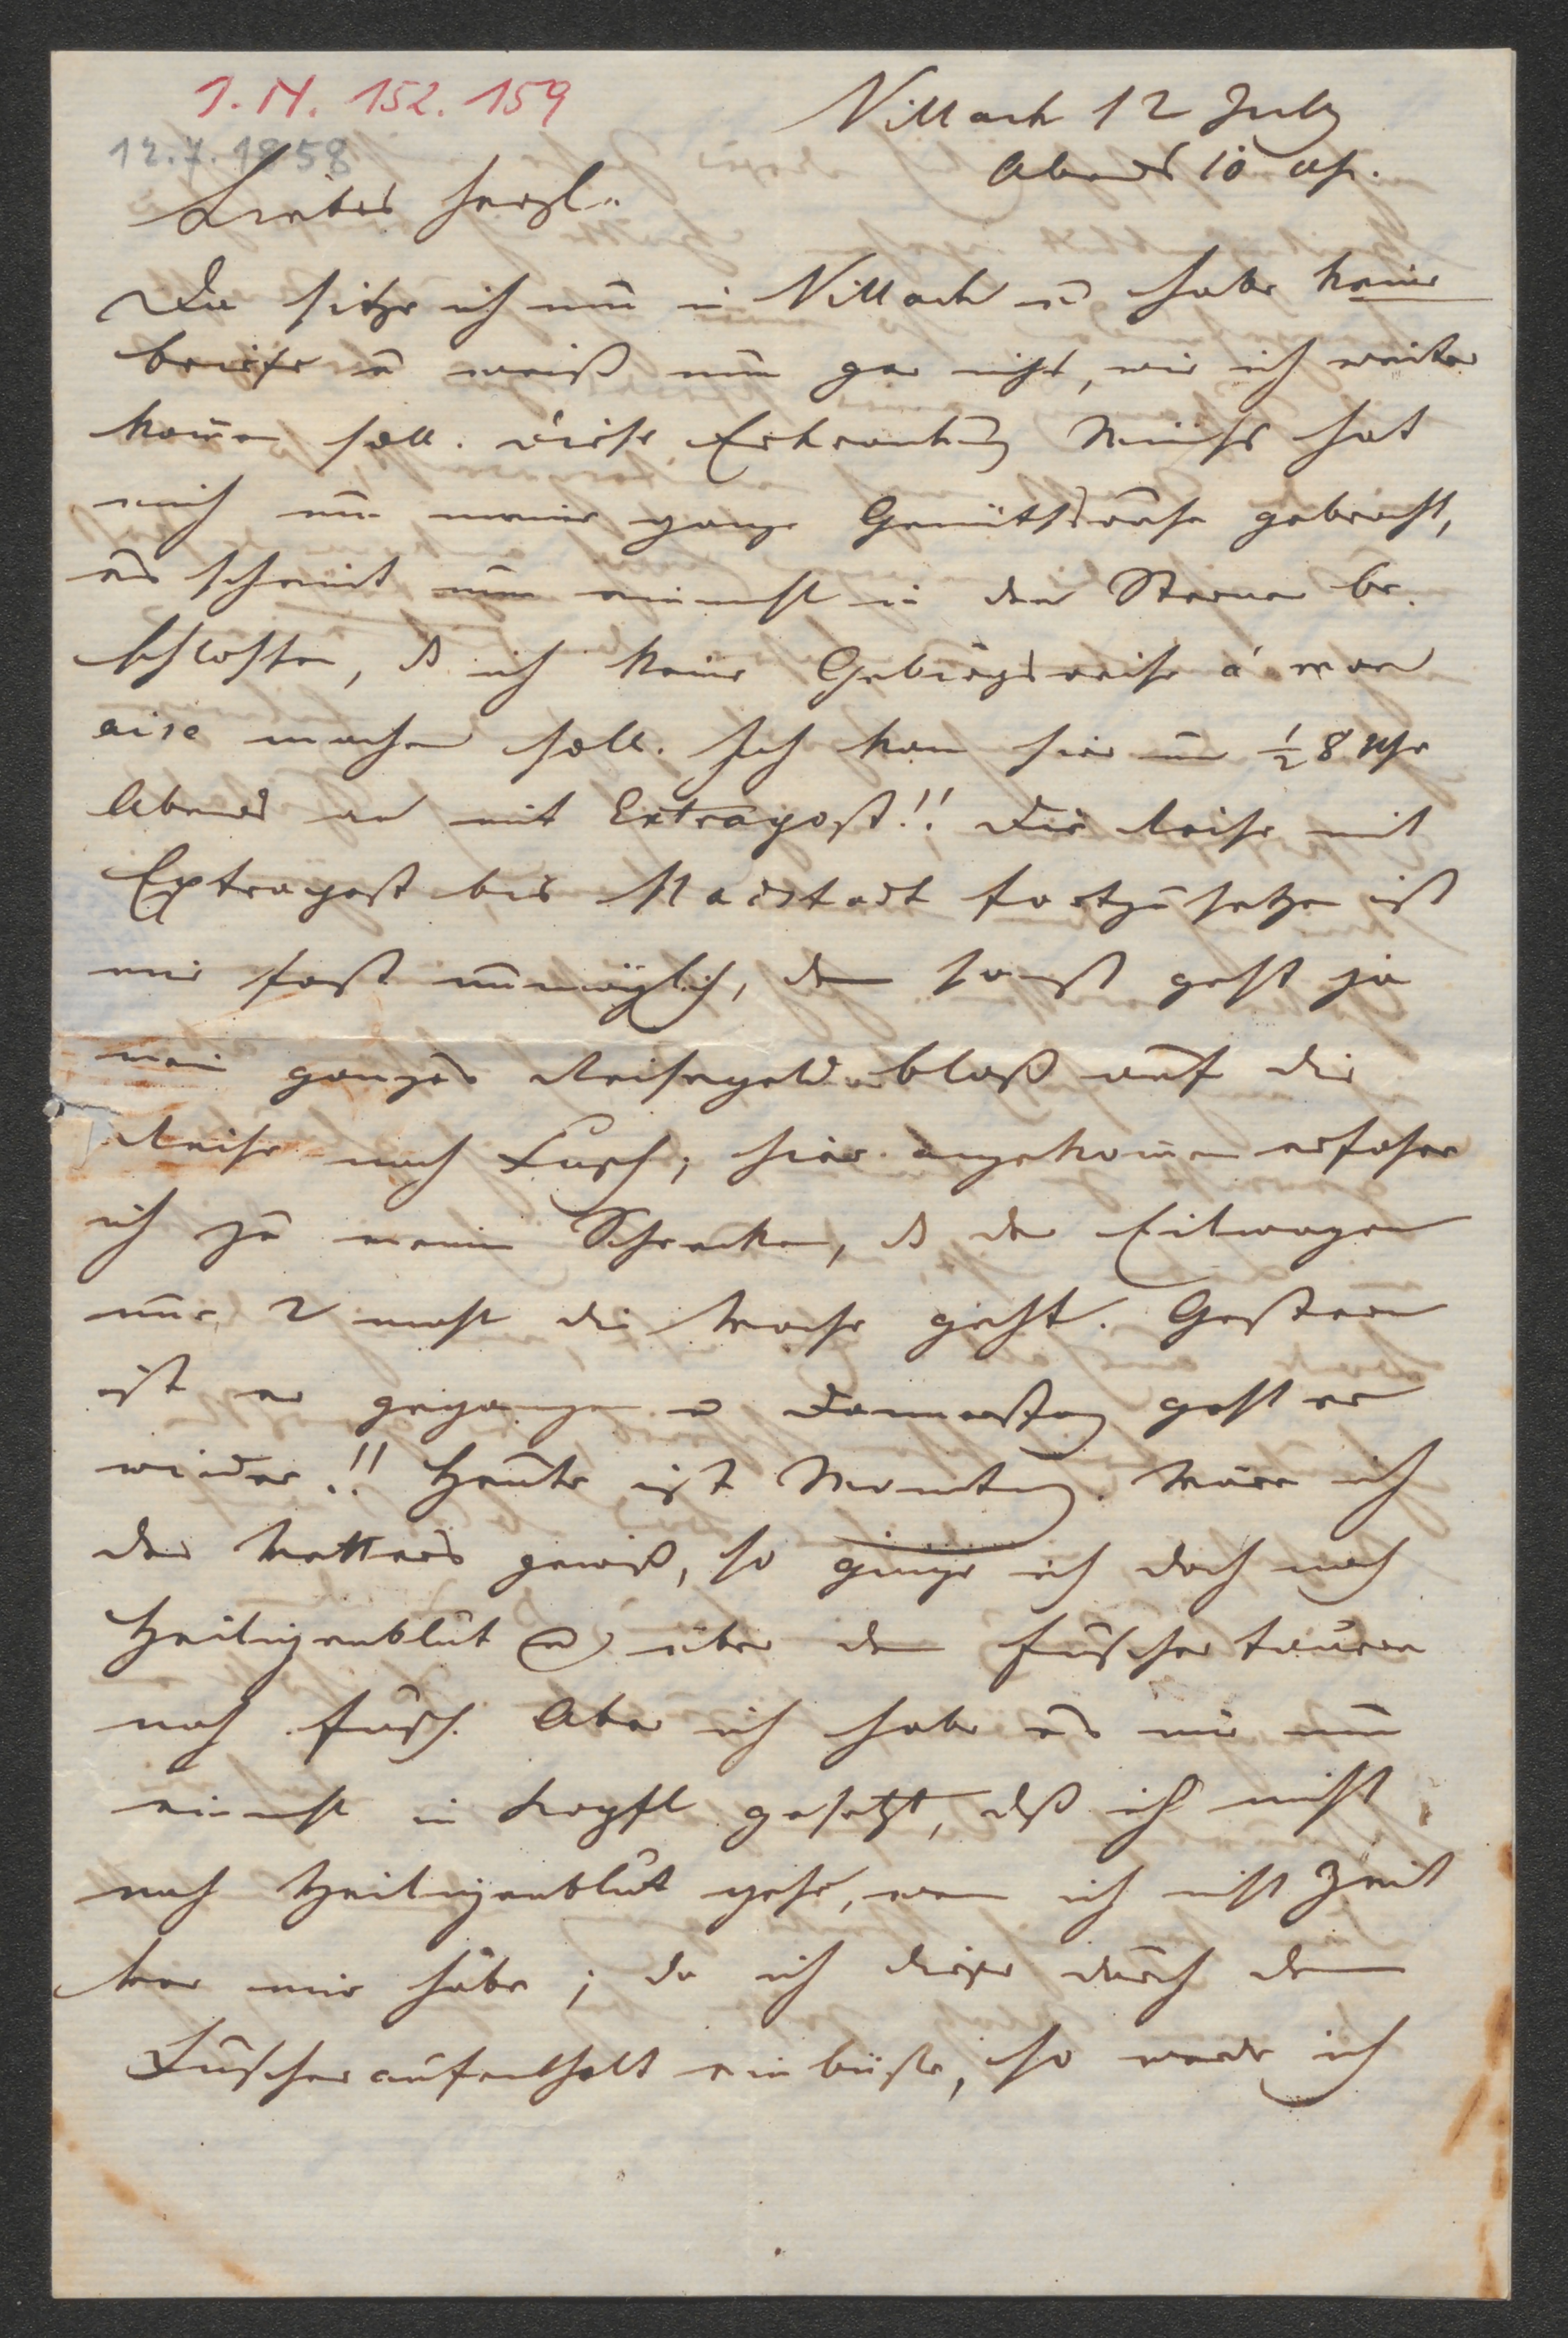 I. N. 152.159
12.7.1858
Villach 12 July
Abends 10 Uhr.
Liebes Herzl.
Da sitze ich nun in Villach u habe keine
briefe u weiß nun gar nicht, wie ich weiter
kom̅en soll. Diese Erkrankung hat
mich um meine ganze Gemüthsruhe gebracht,
es scheint nun einmahl in den Sternen be-
schlossen, dß ich keine Gebirgsreise á mon
aise machen soll. Ich kam hier um ½ 8 Uhr
Abends an mit Extrapost!! Die Reise mit
Extrapost bis Radstadt fortzusetzen ist
mir fast unmöglich, den sonst geht ja
mein ganzes Reisegeld bloß auf die
Reise nach Fusch; hier angekom̅en erfahre
ich zu meinem Schrecken, dß der Eilwagen
nur 2 mahl die Woche geht. Gestern
ist er gegangen u Donnerstag geht er
wieder!! Heute ist Montag. Wäre ich
des Wetters gewiß, so ginge ich doch nach
Heiligenblut u über den Fuscher Tauern
nach Fusch. Aber ich habe es mir nun
einmahl in Kopf gesetzt, dß ich nicht
nach Heiligenblut gehe, wen ich nicht Zeit
vor mir habe; da ich diese durch den
Fuscheraufenthalt einbüße, so werde ich